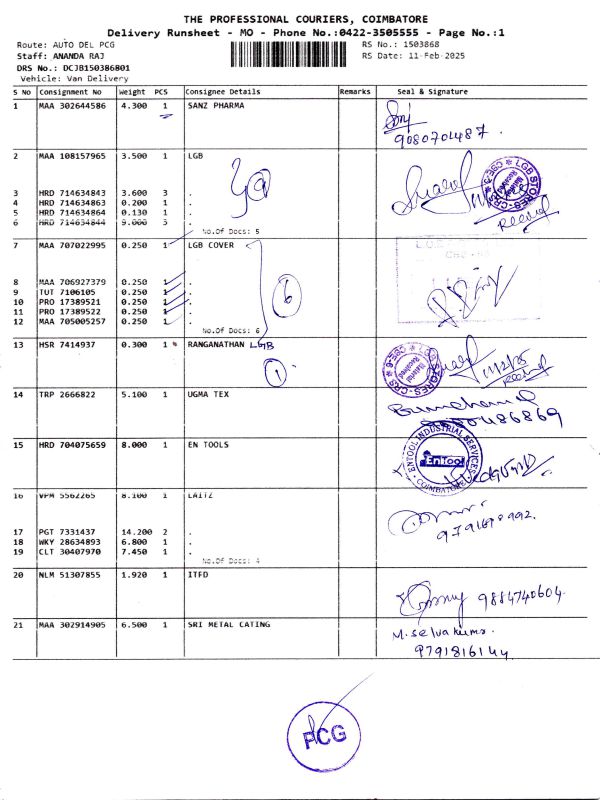 THE PROFESSIONAL COURIERS, COIMBATORE
Delivery Runsheet - MO - Phone No.:0422-3505555 - Page No.:1
Route: AUTO DEL PCG RS No.: 1503868
Staff: ANANDA RAJ RS Date: 11-Feb-2025
DRS No.: DCJB150386801
Vehicle: Van Delivery
S No Consignment No Weight PCS Consignee Details Remarks Seal & Signature
1 MAA 302644586 4.300 1 SANZ PHARMA
9080701487
2 MAA 108157965 3.500 1 LGB
LGB STORES-CRS CSE-6
Material Received
3 HRD 714634843 3.600 3 .
4 HRD 714634863 0.200 1 .
5 HRD 714634864 0.130 1 .
6 HRD 714634844 9.000 3 .
Received
No.Of Docs: 5
7 MAA 707022995 0.250 1 LGB COVER
8 MAA 706927379 0.250 1 .
9 TUT 7106105 0.250 1 .
10 PRO 17389521 0.250 1 .
11 PRO 17389522 0.250 1 .
12 MAA 705005257 0.250 1 .
6
No.Of Docs: 6
13 HSR 7414937 0.300 1 RANGANATHAN LGB
1
LGB STORES-CRS CSE-6
Material Received
11/2/25
Received
14 TRP 2666822 5.100 1 UGMA TEX
15 HRD 704075659 8.000 1 EN TOOLS
ENTOOL INDUSTRIAL SERVICES
EnTool
COIMBATORE
16 VPM 5562265 8.100 1 LAITZ
17 PGT 7331437 14.200 2 .
18 WKY 28634893 6.800 1 .
19 CLT 30407970 7.450 1 .
No.Of Docs: 4
20 NLM 51307855 1.920 1 ITFD
9884740604
21 MAA 302914905 6.500 1 SRI METAL CATING
M. Selvakumar
9791816144
PCG